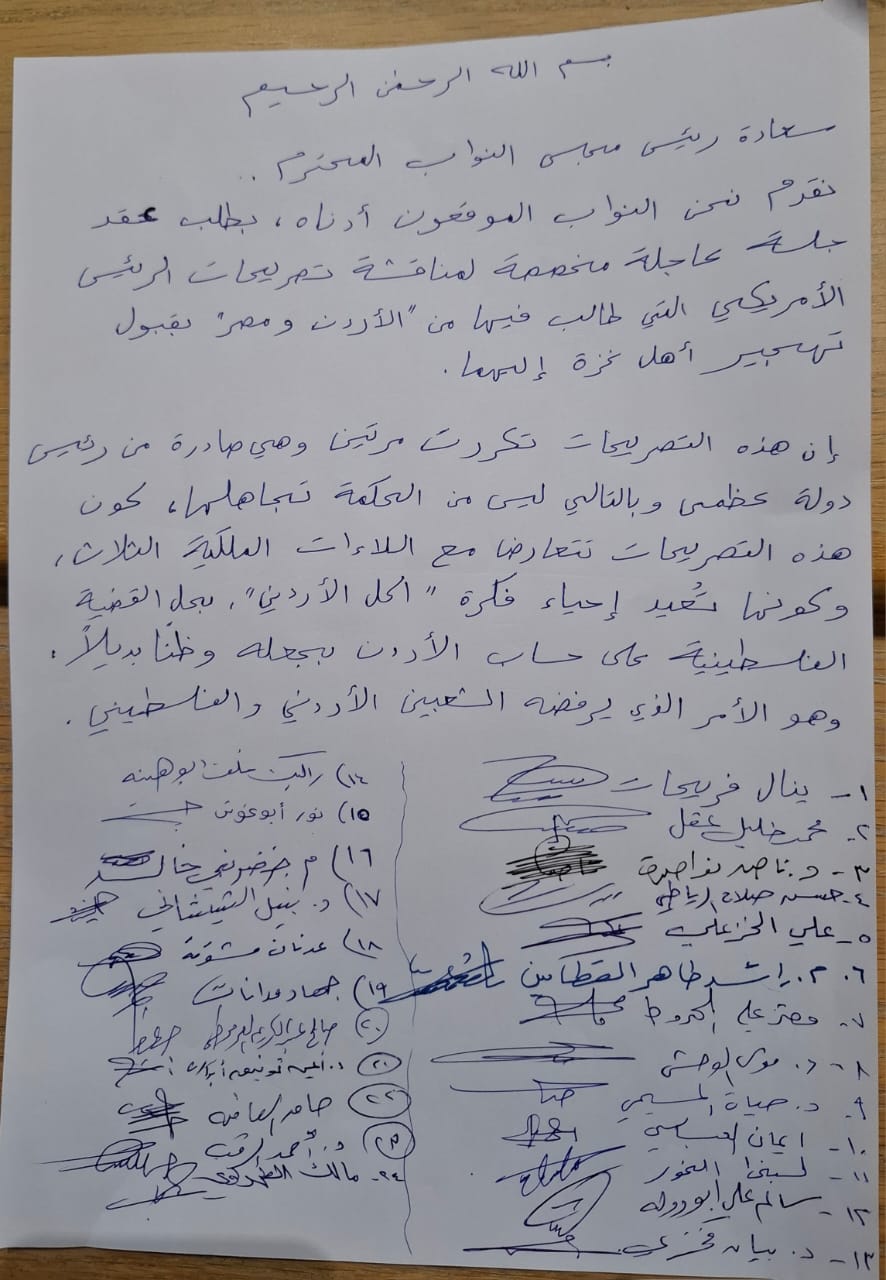 بسم الله الرحمن الرحيم
سعادة رئيس مجلس النواب المحترم ..
نقدم نحن النواب الموقعون أدناه، بطلب عقد
جلسة عاجلة مخصصة لمناقشة تصريحات الرئيس
الأمريكي التي طالب فيها من "الأردن ومصر" بقبول
تهجير أهل غزة إليهما.
إن هذه التصريحات تكررت مرتين وهي صادرة من رئيس
دولة عظمى وبالتالي ليس من الحكمة تجاهلها، كون
هذه التصريحات تتعارض مع اللاءات الملكية الثلاث،
وكونها تُعيد إحياء فكرة "الحل الأردني"، بحل القضية
الفلسطينية على حساب الأردن بجعله وطنًا بديلاً،
وهو الأمر الذي يرفضه الشعبين الأردني والفلسطيني.
١- ينال فريحات
٢- محمد خليل عقل
٣- د. ناصر نواصرة
٤- حسن صلاح الرياطي
٥- علي الخزعلي
٦. م. راشد طاهر القطامين
٧- معتز علي الهروط
٨- د. موسى الوحش
٩- د. حياة المسيمي
١٠- ايمان العباسي
١١- لبنى النمور
١٢- سالم علي ابو دولة
١٣- د. بيان فخري
١٤) راكين خلف ابو هنية
١٥) نور أبوغوش
١٦) م خضر بني خالد
١٧) د. نبيل الشيشاني
١٨) عدنان مشوقة
١٩) جهاد مدانات
٢٠)
٢٠)
٢٢)
٢٣) د. أحمد الرقب
٢٤- مالك الطهراوي